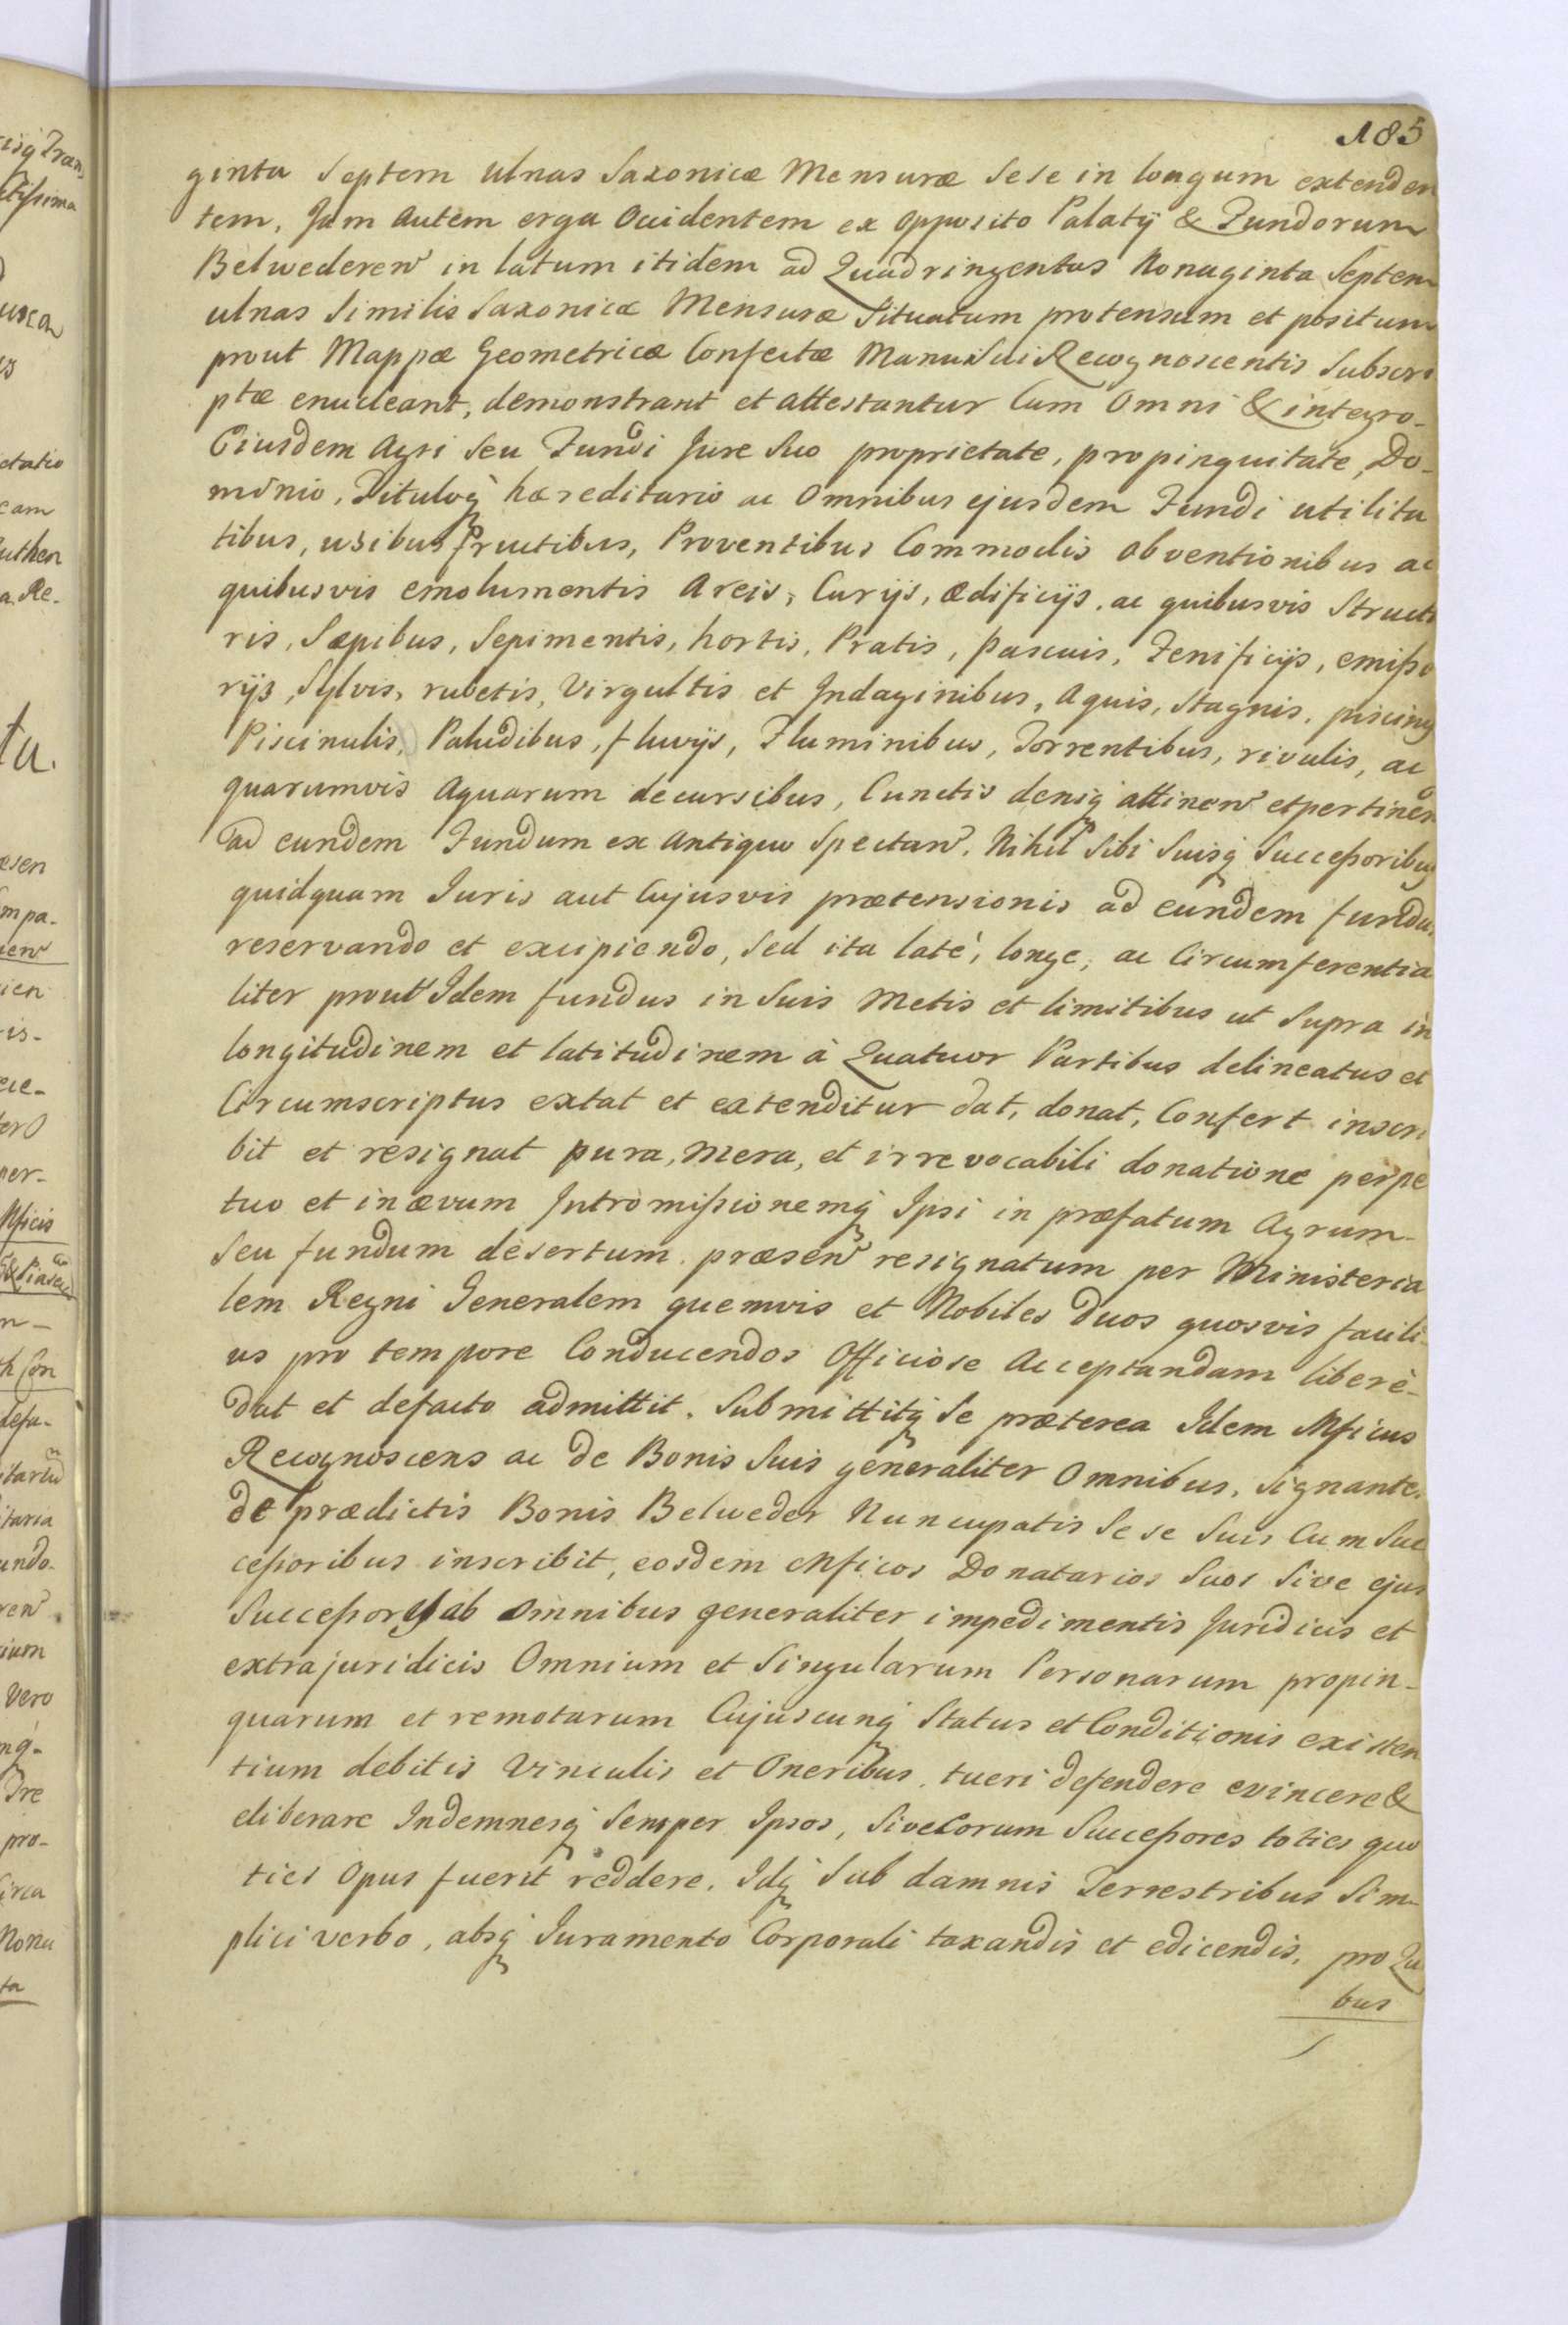 185
ginta Septem ulnas Saxonicæ Mensuræ Sese in longum extenden
tem, Jam Autem erga Occidentem ex Opposito Palatÿ & Fundorum
Belwederen in latum itidem ad Quadringentas Nonaginta Septem
ulnas Similis Saxonicæ Mensuræ Situatum protensum et positum
prout Mappæ Geometricæ Confectæ Manu Sui Recognoscentis Subscri
ptæ enucleant, demonstrant et attestantur Cum Omni & integro-
Eiusdem Agri Seu Fundi Jure Suo proprietate, propinquitate, Do-
minio, Tituloq hæreditario ac Omnibus ejusdem Fundi utilita
tibus, usibus fructibus, Proventibus Commodis obventionibus ac
quibusvis emolumentis Areis, Curÿs, ædificÿs, ac quibusvis Structu
ris, Sæpibus, Sepimentis, hortis, Pratis, pascuis, Fenificÿs, emisso
rÿs, Sylvis, rubetis, Virgultis et Indaginibus, Aquis, Stagnis, piscinis
Piscinulis, Paludibus, fluvÿs, Fluminibus, Torrentibus, rivulis, ac
quarumvis Aquarum decursibus, Cunctis deniq attinen et pertinen
ad eundem Fundum ex Antiquo Spectan. Nihil Sibi Suisq Successoribus
quidquam Juris aut Cujusvis prætensionis ad eundem fundu
reservando et excipiendo, Sed ita laté, longe, ac Circumferentia
liter prout Idem fundus in Suis Metis et limitibus ut Supra in
longitudinem et latitudinem à Quatuor Partibus delineatus et
Circumscriptus extat et extenditur dat, donat, Confert inscri
bit et resignat pura, mera, et irrevocabili donatione perpe
tuo et in ævum Intromissionemq Ipsi in præfatum Agrum-
Seu fundum desertum præsen resignatum per Ministeria
lem Regni Generalem quemvis et Nobiles Duos quosvis facili
us pro tempore Conducendos Officiose Acceptandam liberè-
dat et defacto admittit. Submittitq Se præterea Idem Mficus
Recognoscens ac de Bonis Suis generaliter Omnibus, Signante.
de prædictis Bonis Belweder Nuncupatis Se se Suis Cum Suc
cessoribus inscribit, eosdem Mficos Donatarios Suos Sive ejus
Successores ab Omnibus generaliter impedimentis Juridicis et
extrajuridicis Omnium et Singularum Personarum propin-
quarum et remotarum Cujuscunq Status et Conditionis existen
tium debitis Vinculis et Oneribus, tueri defendere evincere &
eliberare Indemnesq Semper Ipsos, Sive Eorum Successores toties quo
ties Opus fuerit reddere. Idq Sub damnis Terrestribus Sim-
plici verbo, absq Juramento Corporali taxandis et edicendis, pro Qu
bus